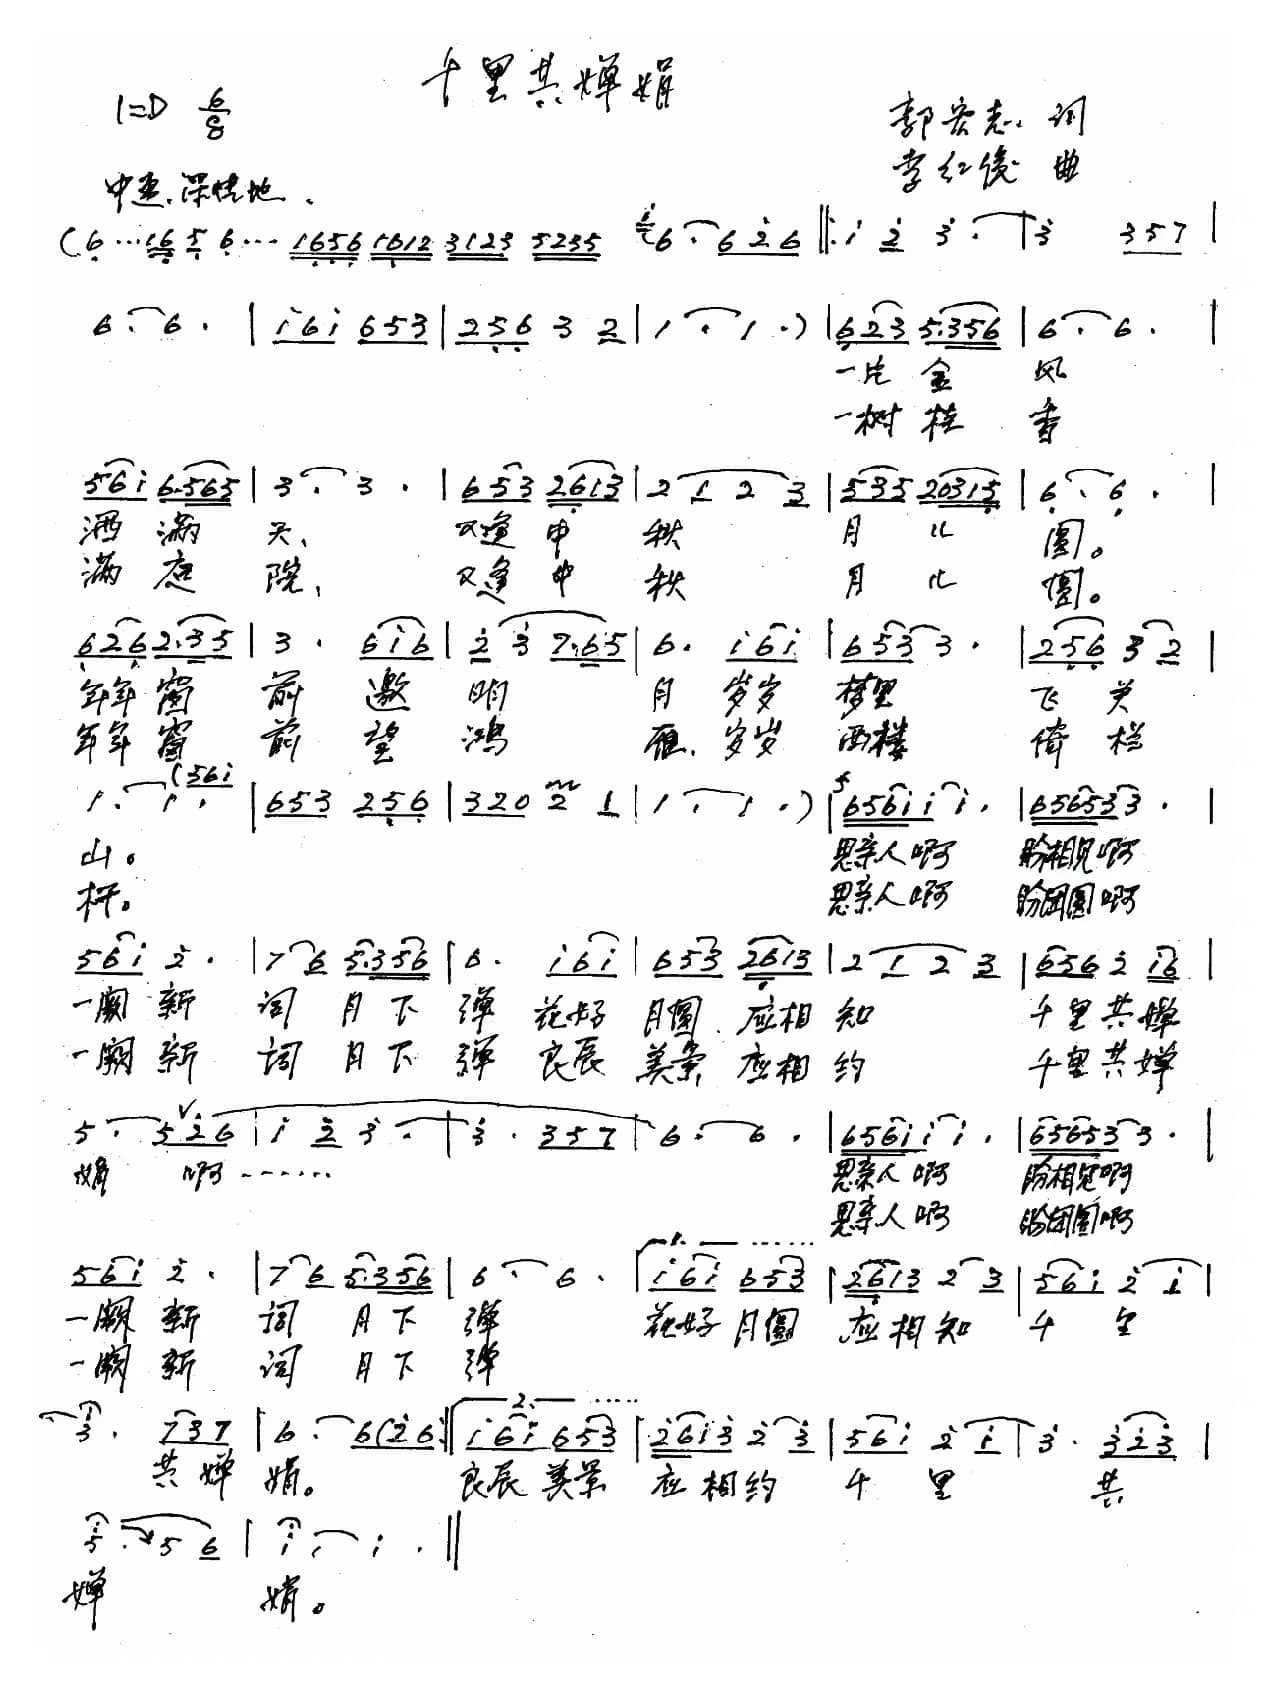 千里共婵娟
1=D 6/8
郭宏志 词
李红俊 曲
中速.深情地.
(6···165 6···1656 1612 3123 5235 i6·626 ‖: i 2 3·| 3 357 |
6·6·| i6i 653 | 256 3 2 | 1·1·) | 623 5·356 | 6·6·|
一片 金 风
一树 桂 香
56i 6·565 | 3·3·| 653 2613 | 2 1 2 3 | 535 20315 | 6·6·|
洒 满 天、 又逢 中 秋 月 儿 圆。
满 庭 院, 又逢 中 秋 月 儿 圆。
626 2·35 | 3·6i6 | 2 3 7·65 | 6·i6i | 653 3·| 256 3 2 |
年年 窗 前 邀 明 月 岁岁 梦里 飞 关
年年 窗 前 望 鸿 雁、岁岁 西楼 倚 栏
1·1·(56i | 653 256 | 320 2 1 | 1·1·) | 656i i i·| 65653 3·|
山。 思亲人啊 盼相见啊
杆。 思亲人啊 盼团圆啊
56i 2·| 7 6 5·356 | 6·i6i | 653 2613 | 2 1 2 3 | 656 2 i6 |
一阙 新 词 月 下 弹 花好 月圆、应相 知 千里共婵
一阙 新 词 月 下 弹 良辰 美景, 应相 约 千里共婵
5·526 | i 2 3·| 3·357 | 6·6·| 656i i i·| 65653 3·|
娟 啊······ 思亲人啊 盼相见啊
思亲人啊 盼团圆啊
56i 2·| 7 6 5·356 | 6·6·| 1.······ i6i 653 | 2613 2 3 | 56i 2 i |
一阙 新 词 月 下 弹 花好 月圆 应相知 千 里
一阙 新 词 月 下 弹
3·737 | 6·6(26:‖ 2.····· i6i 653 | 26i3 2 3 | 56i 2 i | 3·323 |
共婵 娟。 良辰美景 应相约 千 里 共
5·5 6 | i·i·‖
婵 娟。